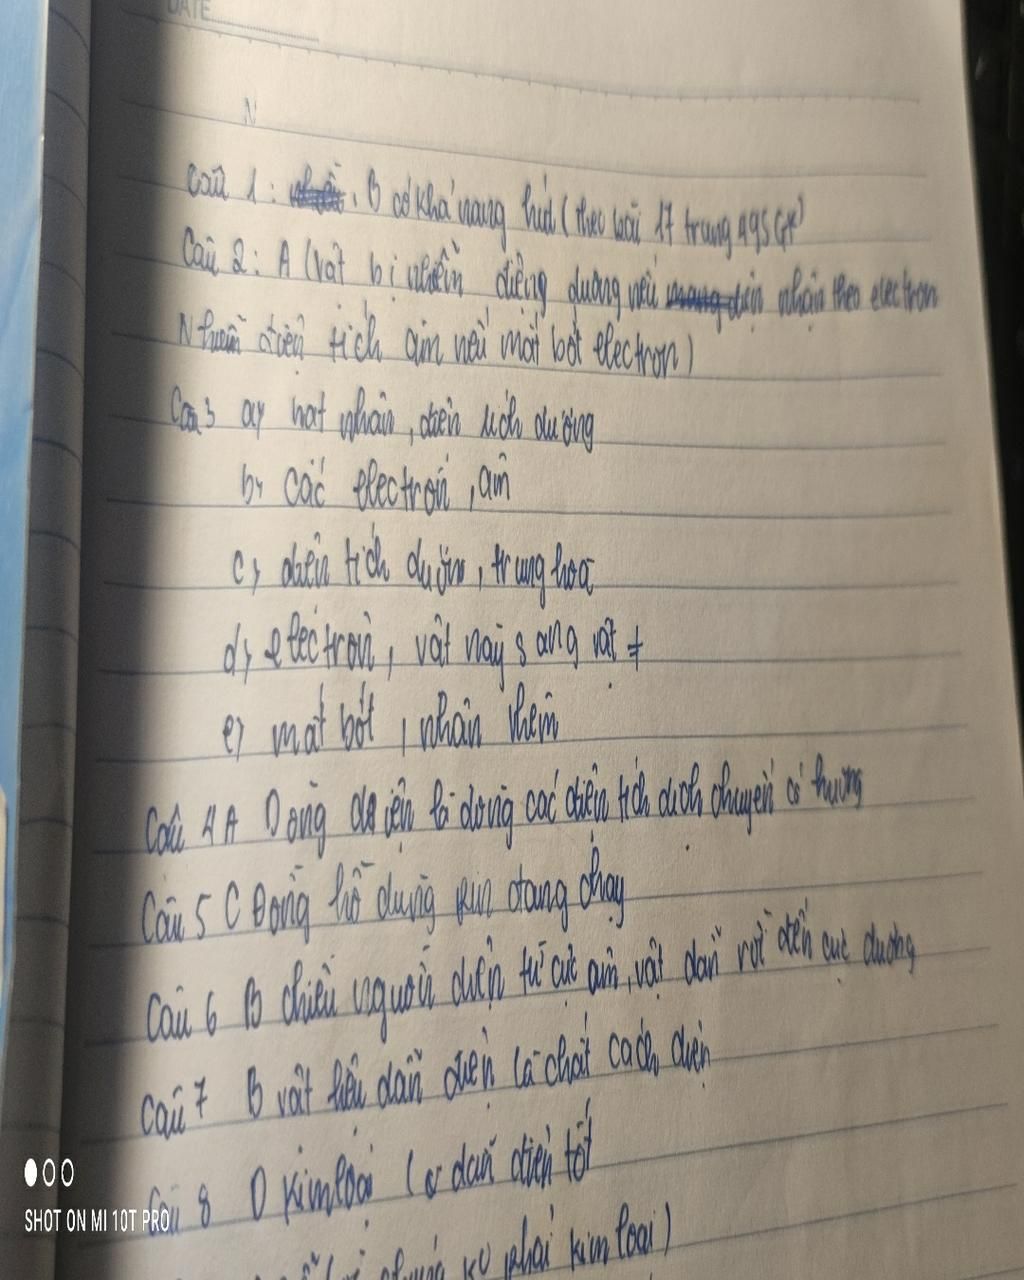 DATE
N
Câu 1: B có khả năng hút (theo bài 17 trang 49 SGK)
Câu 2: A (vật bị nhiễm điện dương nếu nhận thêm electron
Nhiễm điện tích âm nếu mất bớt electron)
Câu 3 a, hạt nhân, điện tích dương
b, các electron, âm
c, điện tích dương, trung hoà
d, electron, vật này sang vật ≠
e, mất bớt, nhận thêm
Câu 4 A Dòng điện là dòng các điện tích dịch chuyển có hướng
Câu 5 C Đồng hồ dùng pin đang chạy
Câu 6 B chiều người điện từ cực âm, vật dẫn rồi đến cực dương
Câu 7 B vật liệu dẫn điện là chất cách điện
Câu 8 D kim loại (dẫn điện tốt
phải kim loại)
SHOT ON MI 10T PRO